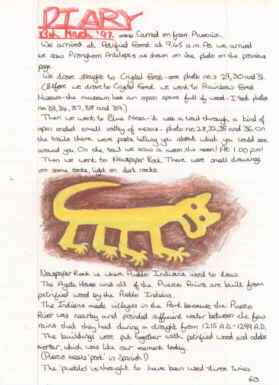 DIARY
13th March '97. ... Carried on from Phoenix.
We arrived at Petrified Forest at 9.45 a.m. As we arrived
we saw Pronghorn Antelopes as shown on the photo on the previous
page.
We drove straight to Crystal Forest - see photo no.s 29, 30 and 31.
(Before we drove to Crystal Forest we went to Rainbow Forest
Museum - the museum has an open space full of wood - I took photo
no 33, 34, 37, 38 and 39.)
Then we went to Blue Mesa - it was a trail through, a kind of
open ended small valley of mesas - photo no. 28, 32, 35 and 36. On
the trails there were posts telling you about what you could see
around you. On the trail we saw a moon (the moon) at 1.00 p.m!
Then we went to Newspaper Rock. There were small drawings
on some rocks, light on dark rocks.
Newspaper Rock is where Pueblo Indians used to trace.
The Agate House and all of the Puerco Ruins are built from
petrified wood by the Pueblo Indians.
The Indians made villages in the Park because the Puerco
River was nearby and provided sufficient water between the few
rains that they had during a drought from 1215 A.D - 1299 A.D.
The buildings were put together with petrified wood and adobe
mortar, which was like our cement today.
(Puerco means 'pork' in Spanish!)
The 'pueblo' is thought to have been used three times